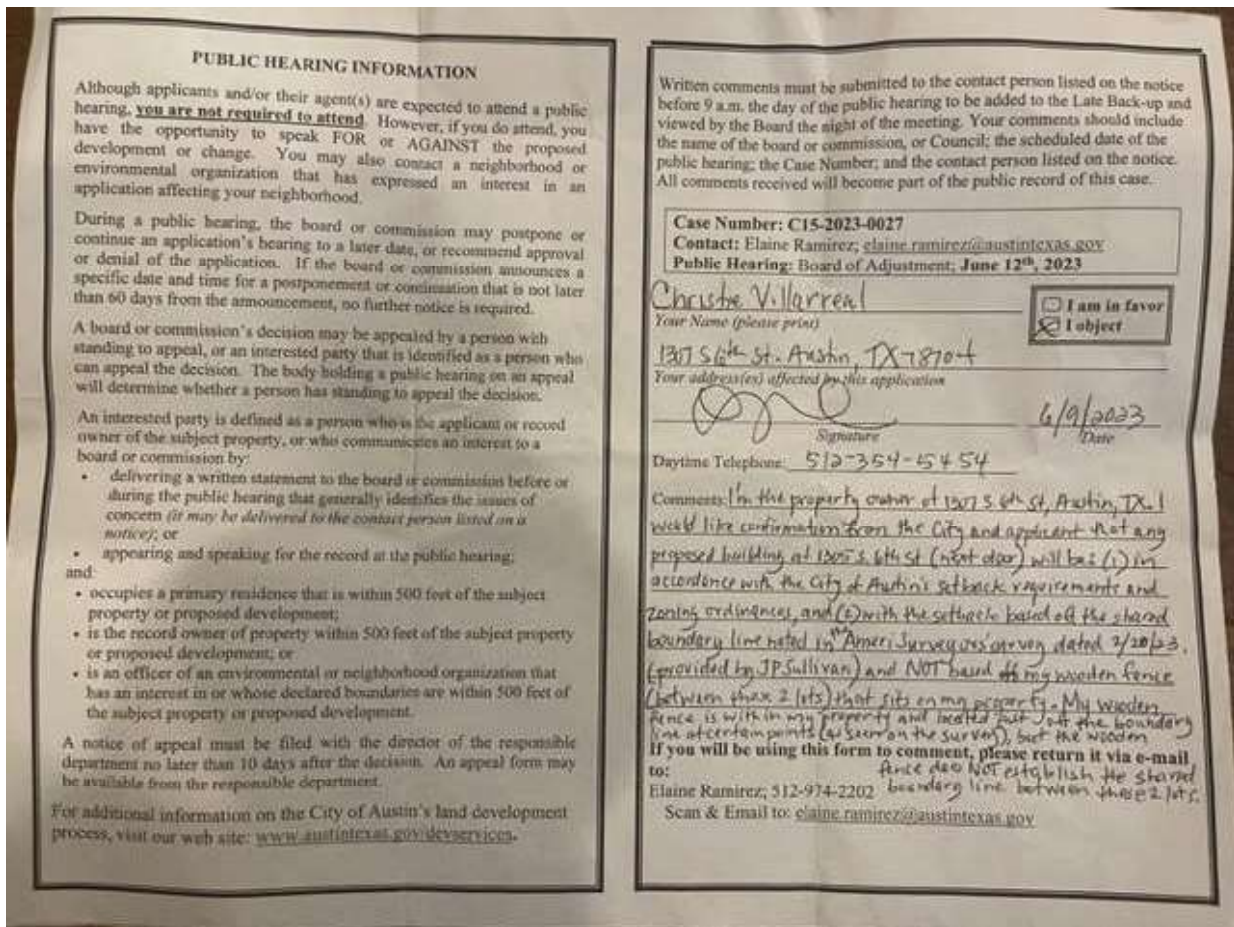 PUBLIC HEARING INFORMATION
Although applicants and/or their agent(s) are expected to attend a public
hearing, you are not required to attend. However, if you do attend, you
have the opportunity to speak FOR or AGAINST the proposed
development or change. You may also contact a neighborhood or
environmental organization that has expressed an interest in an
application affecting your neighborhood.
During a public hearing, the board or commission may postpone or
continue an application's hearing to a later date, or recommend approval
or denial of the application. If the board or commission announces a
specific date and time for a postponement or continuation that is not later
than 60 days from the announcement, no further notice is required.
A board or commission's decision may be appealed by a person with
standing to appeal, or an interested party that is identified as a person who
can appeal the decision. The body holding a public hearing on an appeal
will determine whether a person has standing to appeal the decision.
An interested party is defined as a person who is the applicant or record
owner of the subject property, or who communicates an interest to a
board or commission by:
• delivering a written statement to the board or commission before or
during the public hearing that generally identifies the issues of
concern (it may be delivered to the contact person listed on a
notice); or
• appearing and speaking for the record at the public hearing;
and:
• occupies a primary residence that is within 500 feet of the subject
property or proposed development;
• is the record owner of property within 500 feet of the subject property
or proposed development; or
• is an officer of an environmental or neighborhood organization that
has an interest in or whose declared boundaries are within 500 feet of
the subject property or proposed development.
A notice of appeal must be filed with the director of the responsible
department no later than 10 days after the decision. An appeal form may
be available from the responsible department.
For additional information on the City of Austin's land development
process, visit our web site: www.austintexas.gov/devservices.
Written comments must be submitted to the contact person listed on the notice
before 9 a.m. the day of the public hearing to be added to the Late Back-up and
viewed by the Board the night of the meeting. Your comments should include
the name of the board or commission, or Council; the scheduled date of the
public hearing; the Case Number; and the contact person listed on the notice.
All comments received will become part of the public record of this case.
Case Number: C15-2023-0027
Contact: Elaine Ramirez; elaine.ramirez@austintexas.gov
Public Hearing: Board of Adjustment; June 12th, 2023
Christie Villarreal
Your Name (please print)
I am in favor
I object
1307 S 6th St. Austin, TX 78704
Your address(es) affected by this application
6/9/2023
Signature Date
Daytime Telephone: 512-354-5454
Comments: I'm the property owner of 1307 S. 6th St, Austin, TX. I
would like confirmation from the City and applicant that any
proposed building at 1305 S. 6th St (next door) will be: (1) in
accordance with the City of Austin's setback requirements and
zoning ordinances, and (2) with the setback based off the shared
boundary line noted in Ameri Surveyors' survey dated 2/20/23,
(provided by JP Sullivan) and NOT based off my wooden fence
(between these 2 lots) that sits on my property. My wooden
fence is within my property and located just off the boundary
line at certain points (as seen on the survey), but the wooden
If you will be using this form to comment, please return it via e-mail
to: fence does NOT establish the shared
Elaine Ramirez; 512-974-2202 boundary line between these 2 lots.
Scan & Email to: elaine.ramirez@austintexas.gov